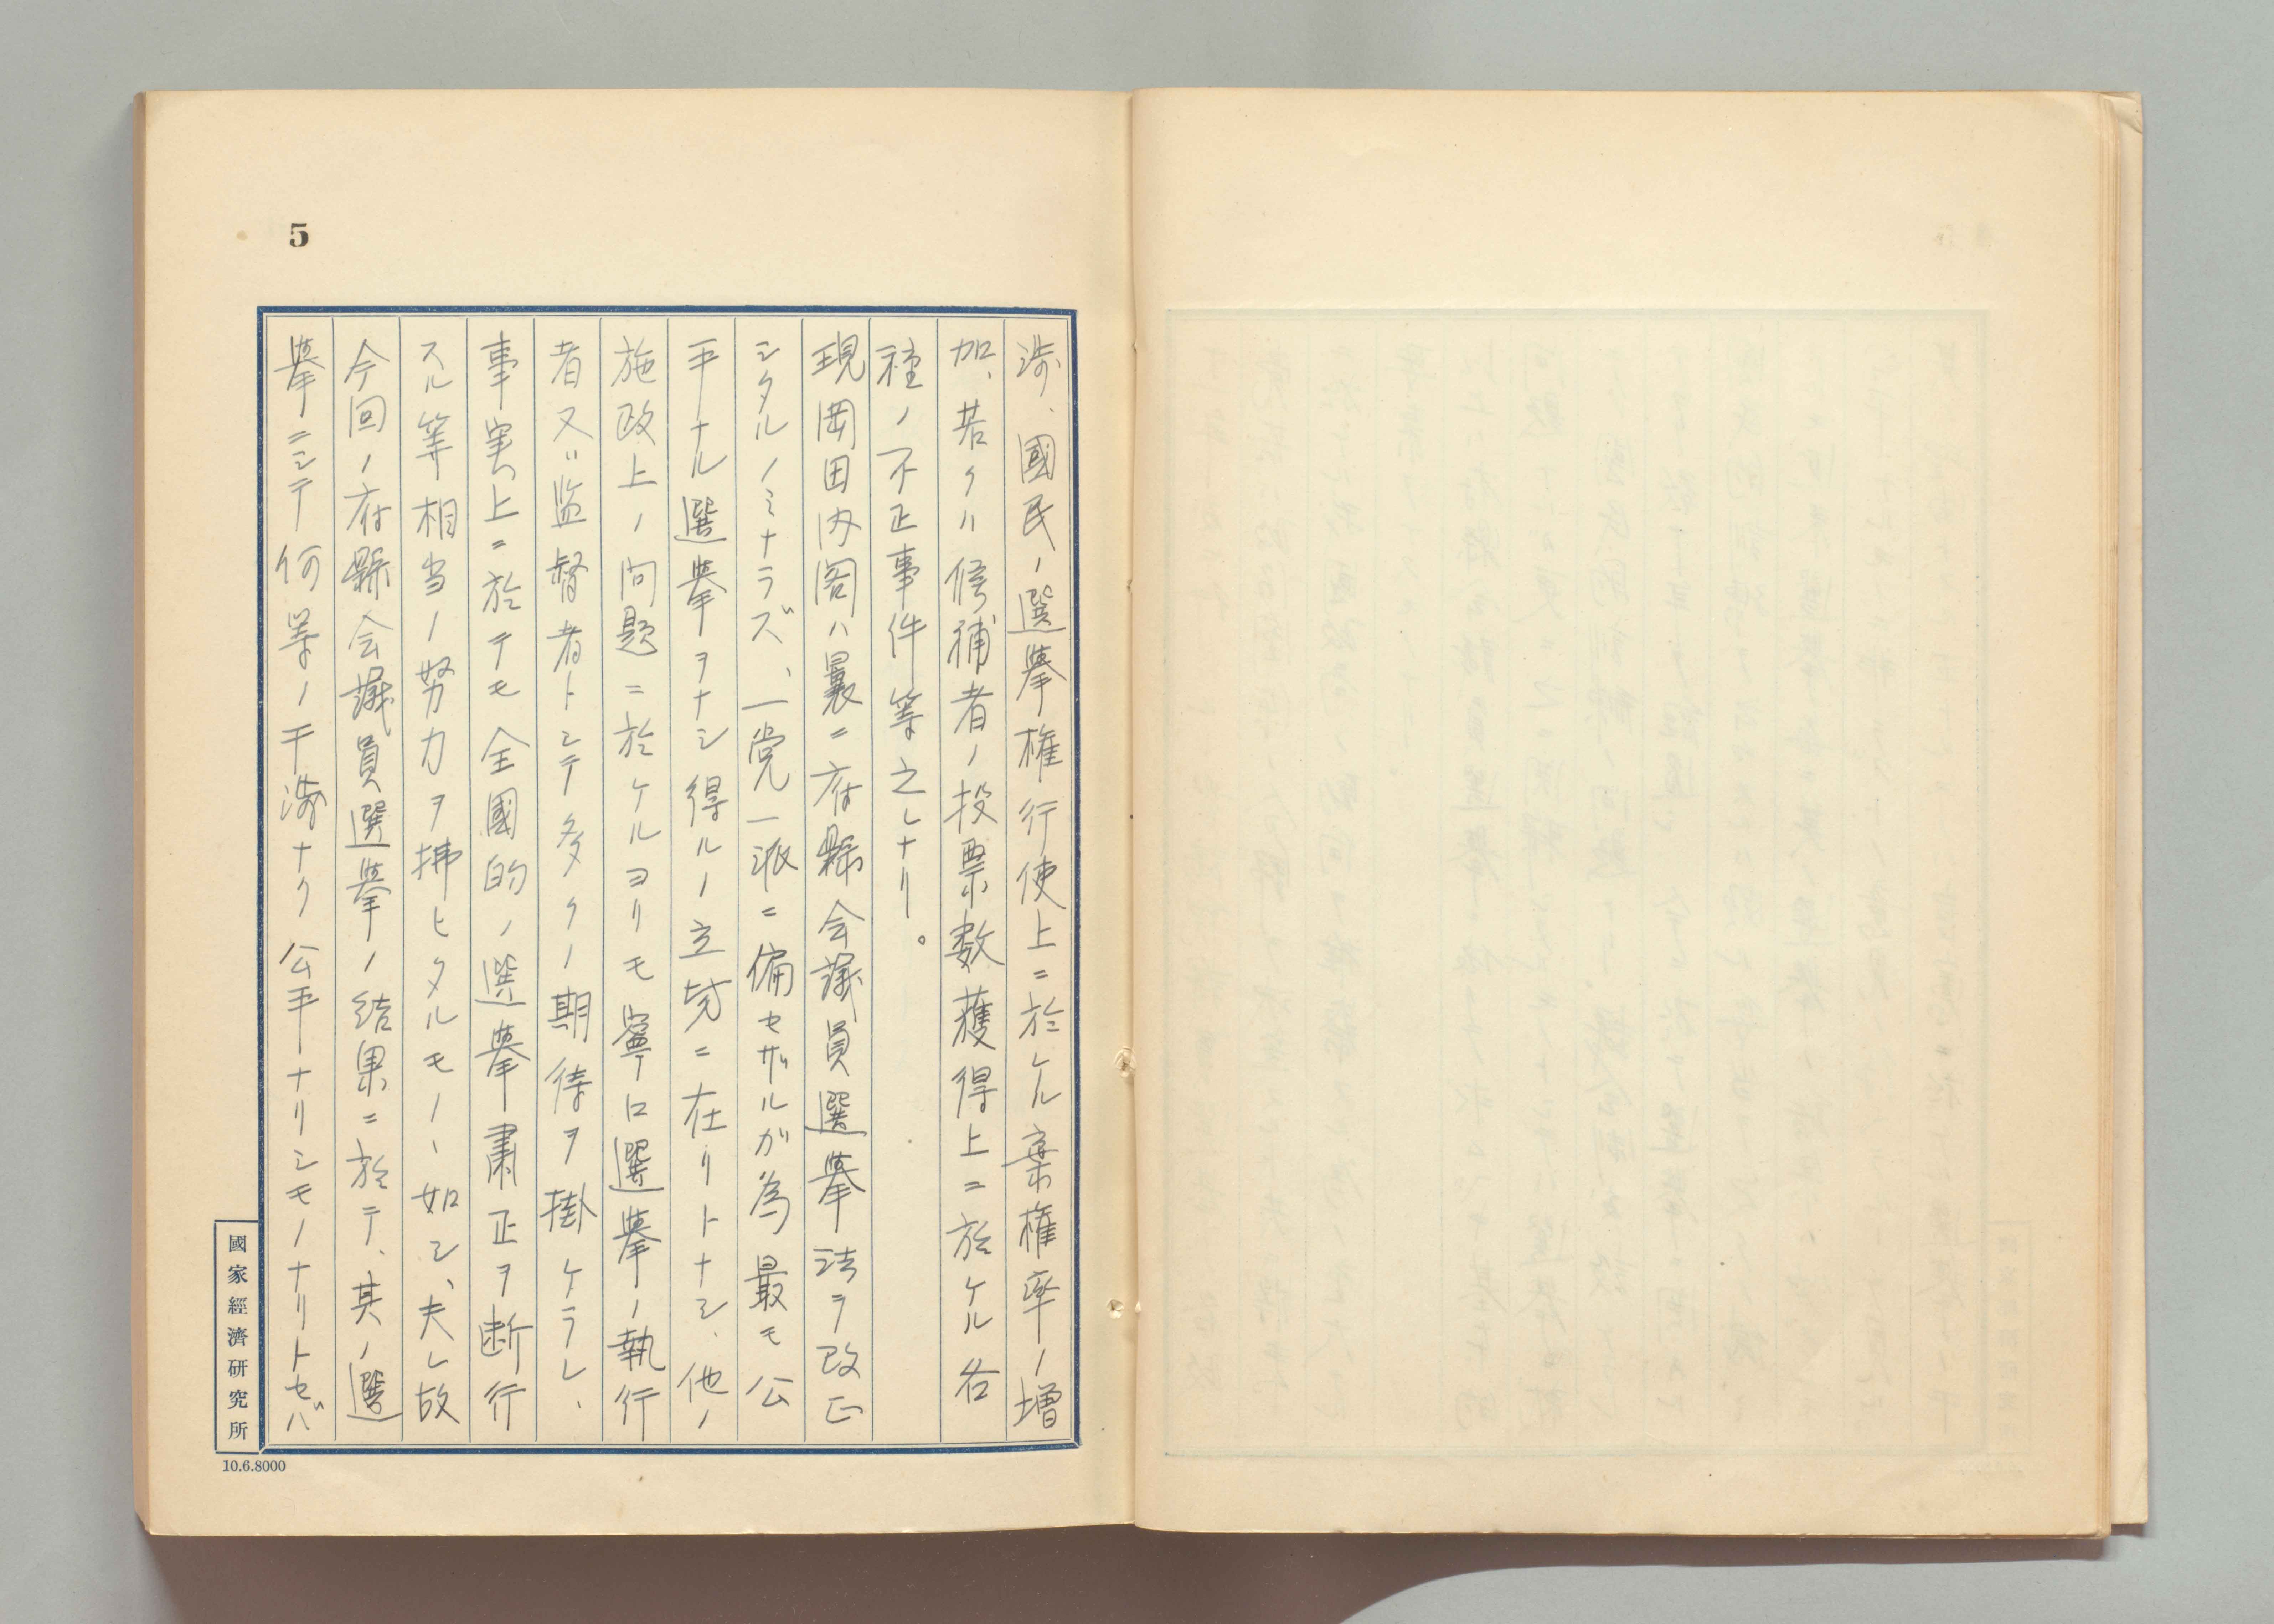 5
渉、國民ノ選挙権行使上ニ於ケル棄権率ノ増
加、若クハ候補者ノ投票数獲得上ニ於ケル各
種ノ不正事件等之レナリ。
現岡田内閣ハ曩ニ府縣会議員選挙法ヲ改正
シタルノミナラズ、一党一派ニ偏セザルガ為最モ公
平ナル選挙ヲナシ得ルノ立場ニ在リトナシ、他ノ
施政上ノ問題ニ於ケルヨリモ寧ロ選挙ノ執行
者又ハ監督者トシテ多クノ期待ヲ掛ケラレ、
事実上ニ於テモ全國的ノ選挙肅正ヲ断行
スル等相当ノ努力ヲ拂ヒタルモノヽ如シ、夫レ故
今回ノ府縣会議員選挙ノ結果ニ於テ、其ノ選
挙ニシテ何等ノ干渉ナク公平ナリシモノナリトセバ
國家經濟研究所
10.6.8000